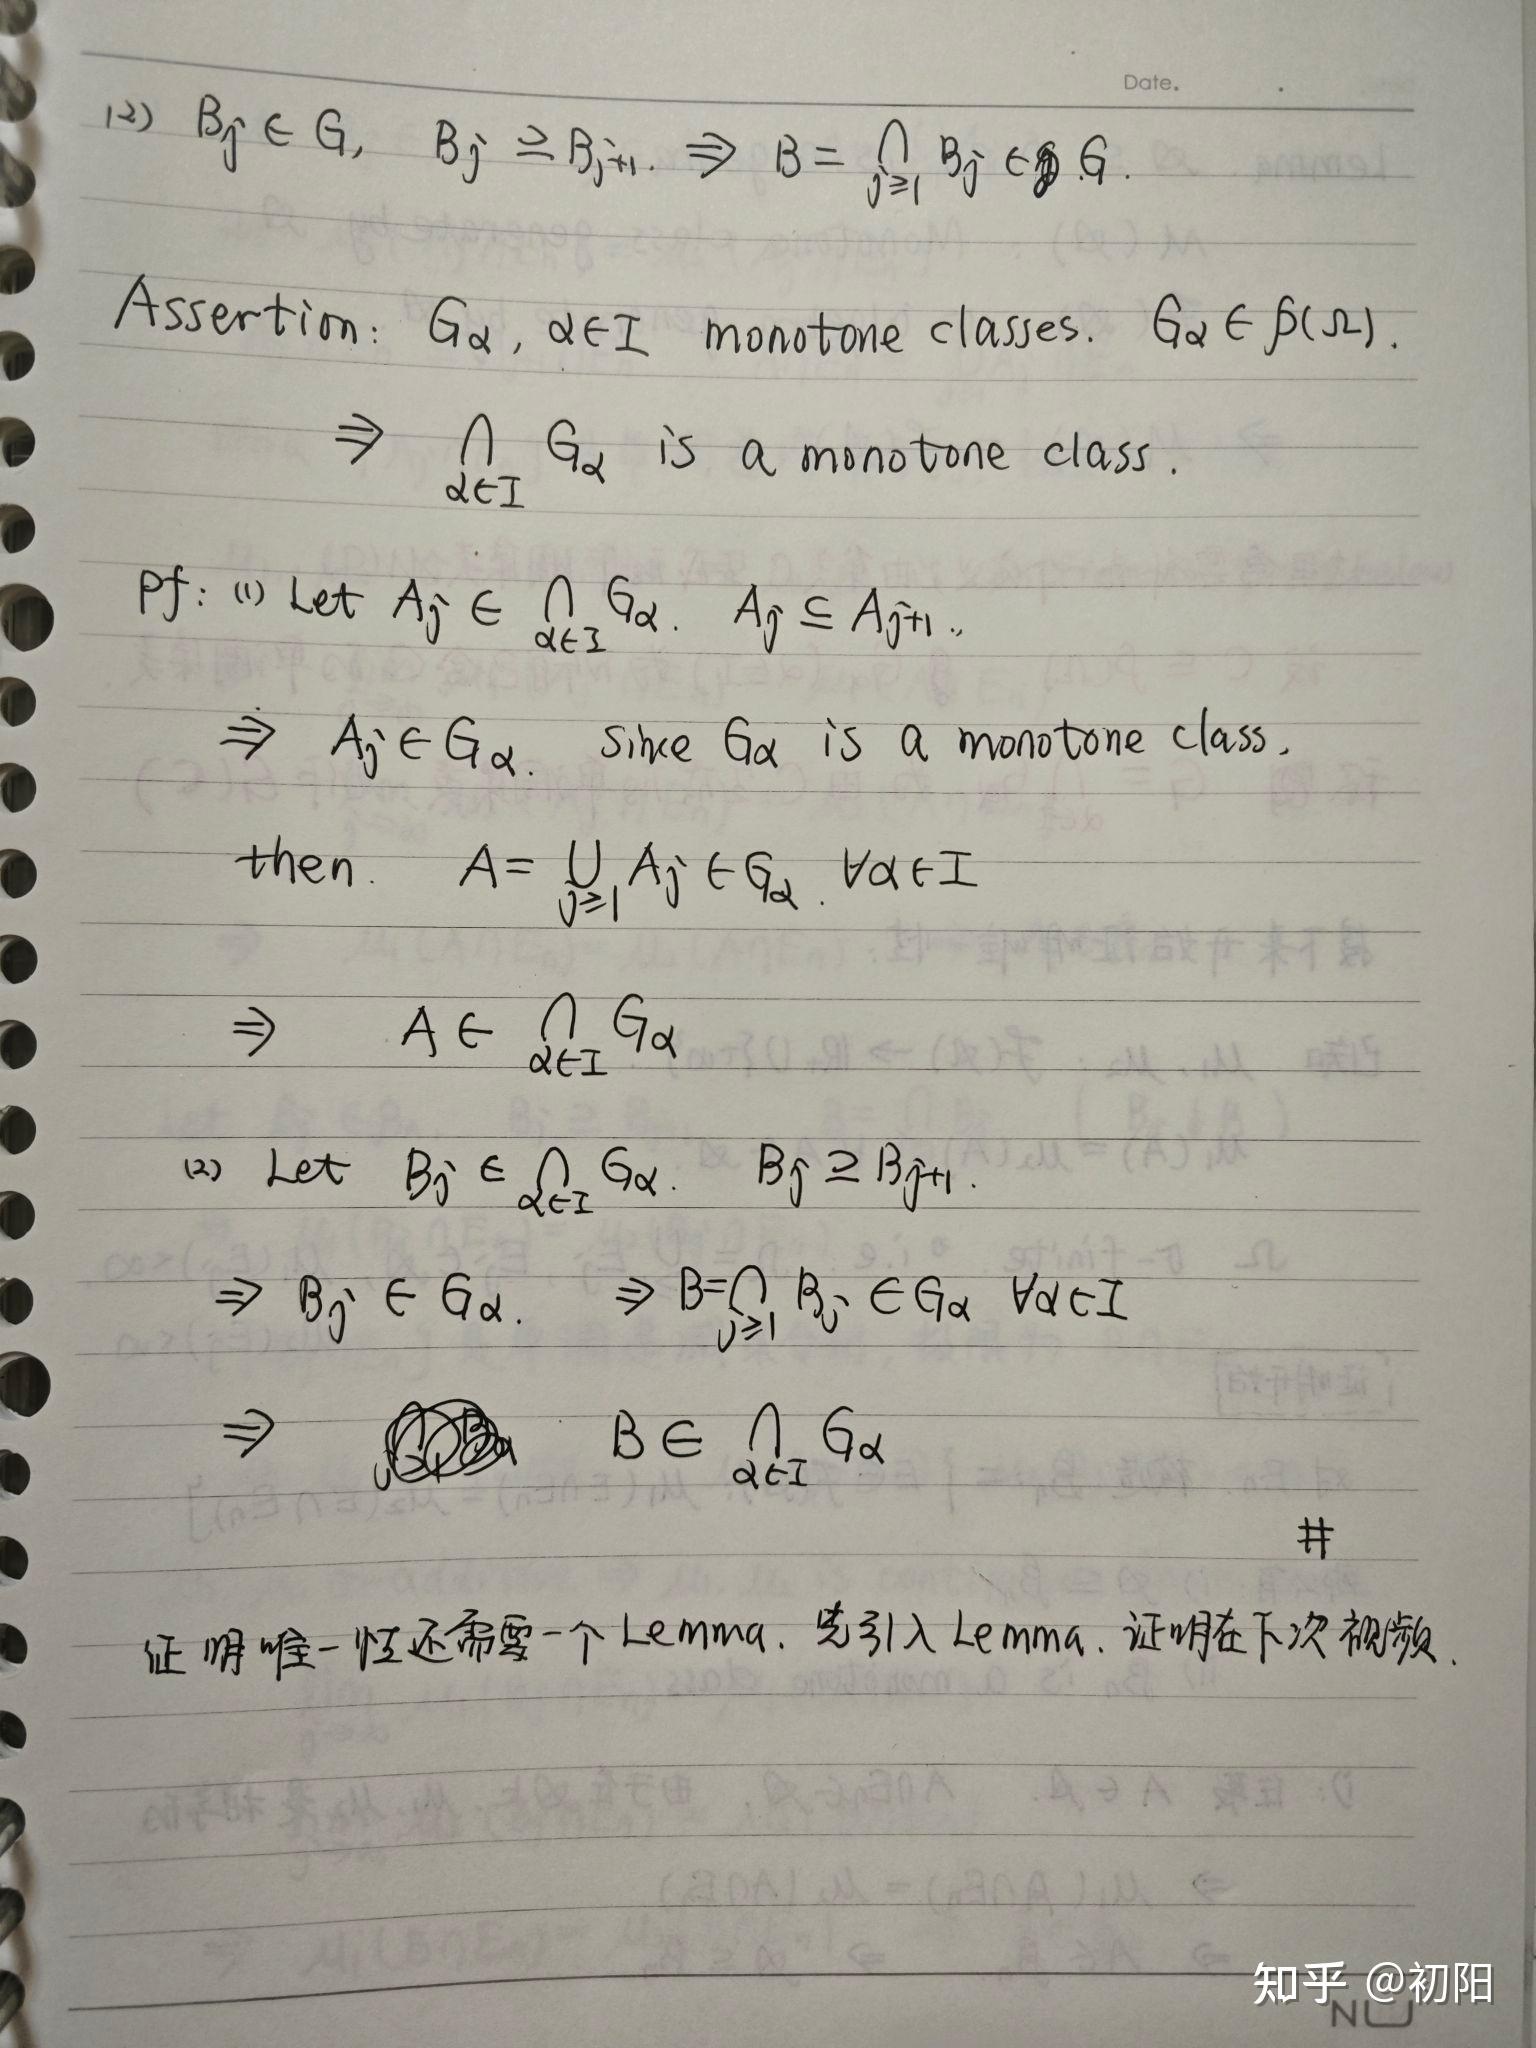 Date.
(2) Bj ∈ G, Bj ⊇ Bj+1. ⇒ B = ⋂_{j≥1} Bj ∈ G.
Assertion: Gα, α∈I monotone classes. Gα ∈ ℘(Ω).
⇒ ⋂_{α∈I} Gα is a monotone class.
Pf: (1) Let Aj ∈ ⋂_{α∈I} Gα. Aj ⊆ Aj+1.
⇒ Aj ∈ Gα. Since Gα is a monotone class.
then. A = ⋃_{j≥1} Aj ∈ Gα. ∀α∈I
⇒ A ∈ ⋂_{α∈I} Gα
(2) Let Bj ∈ ⋂_{α∈I} Gα. Bj ⊇ Bj+1.
⇒ Bj ∈ Gα. ⇒ B = ⋂_{j≥1} Bj ∈ Gα ∀α∈I
⇒ B ∈ ⋂_{α∈I} Gα
#
证明唯一性还需要一个 Lemma. 先引入 Lemma. 证明在下次视频.
知乎 @初阳
NU